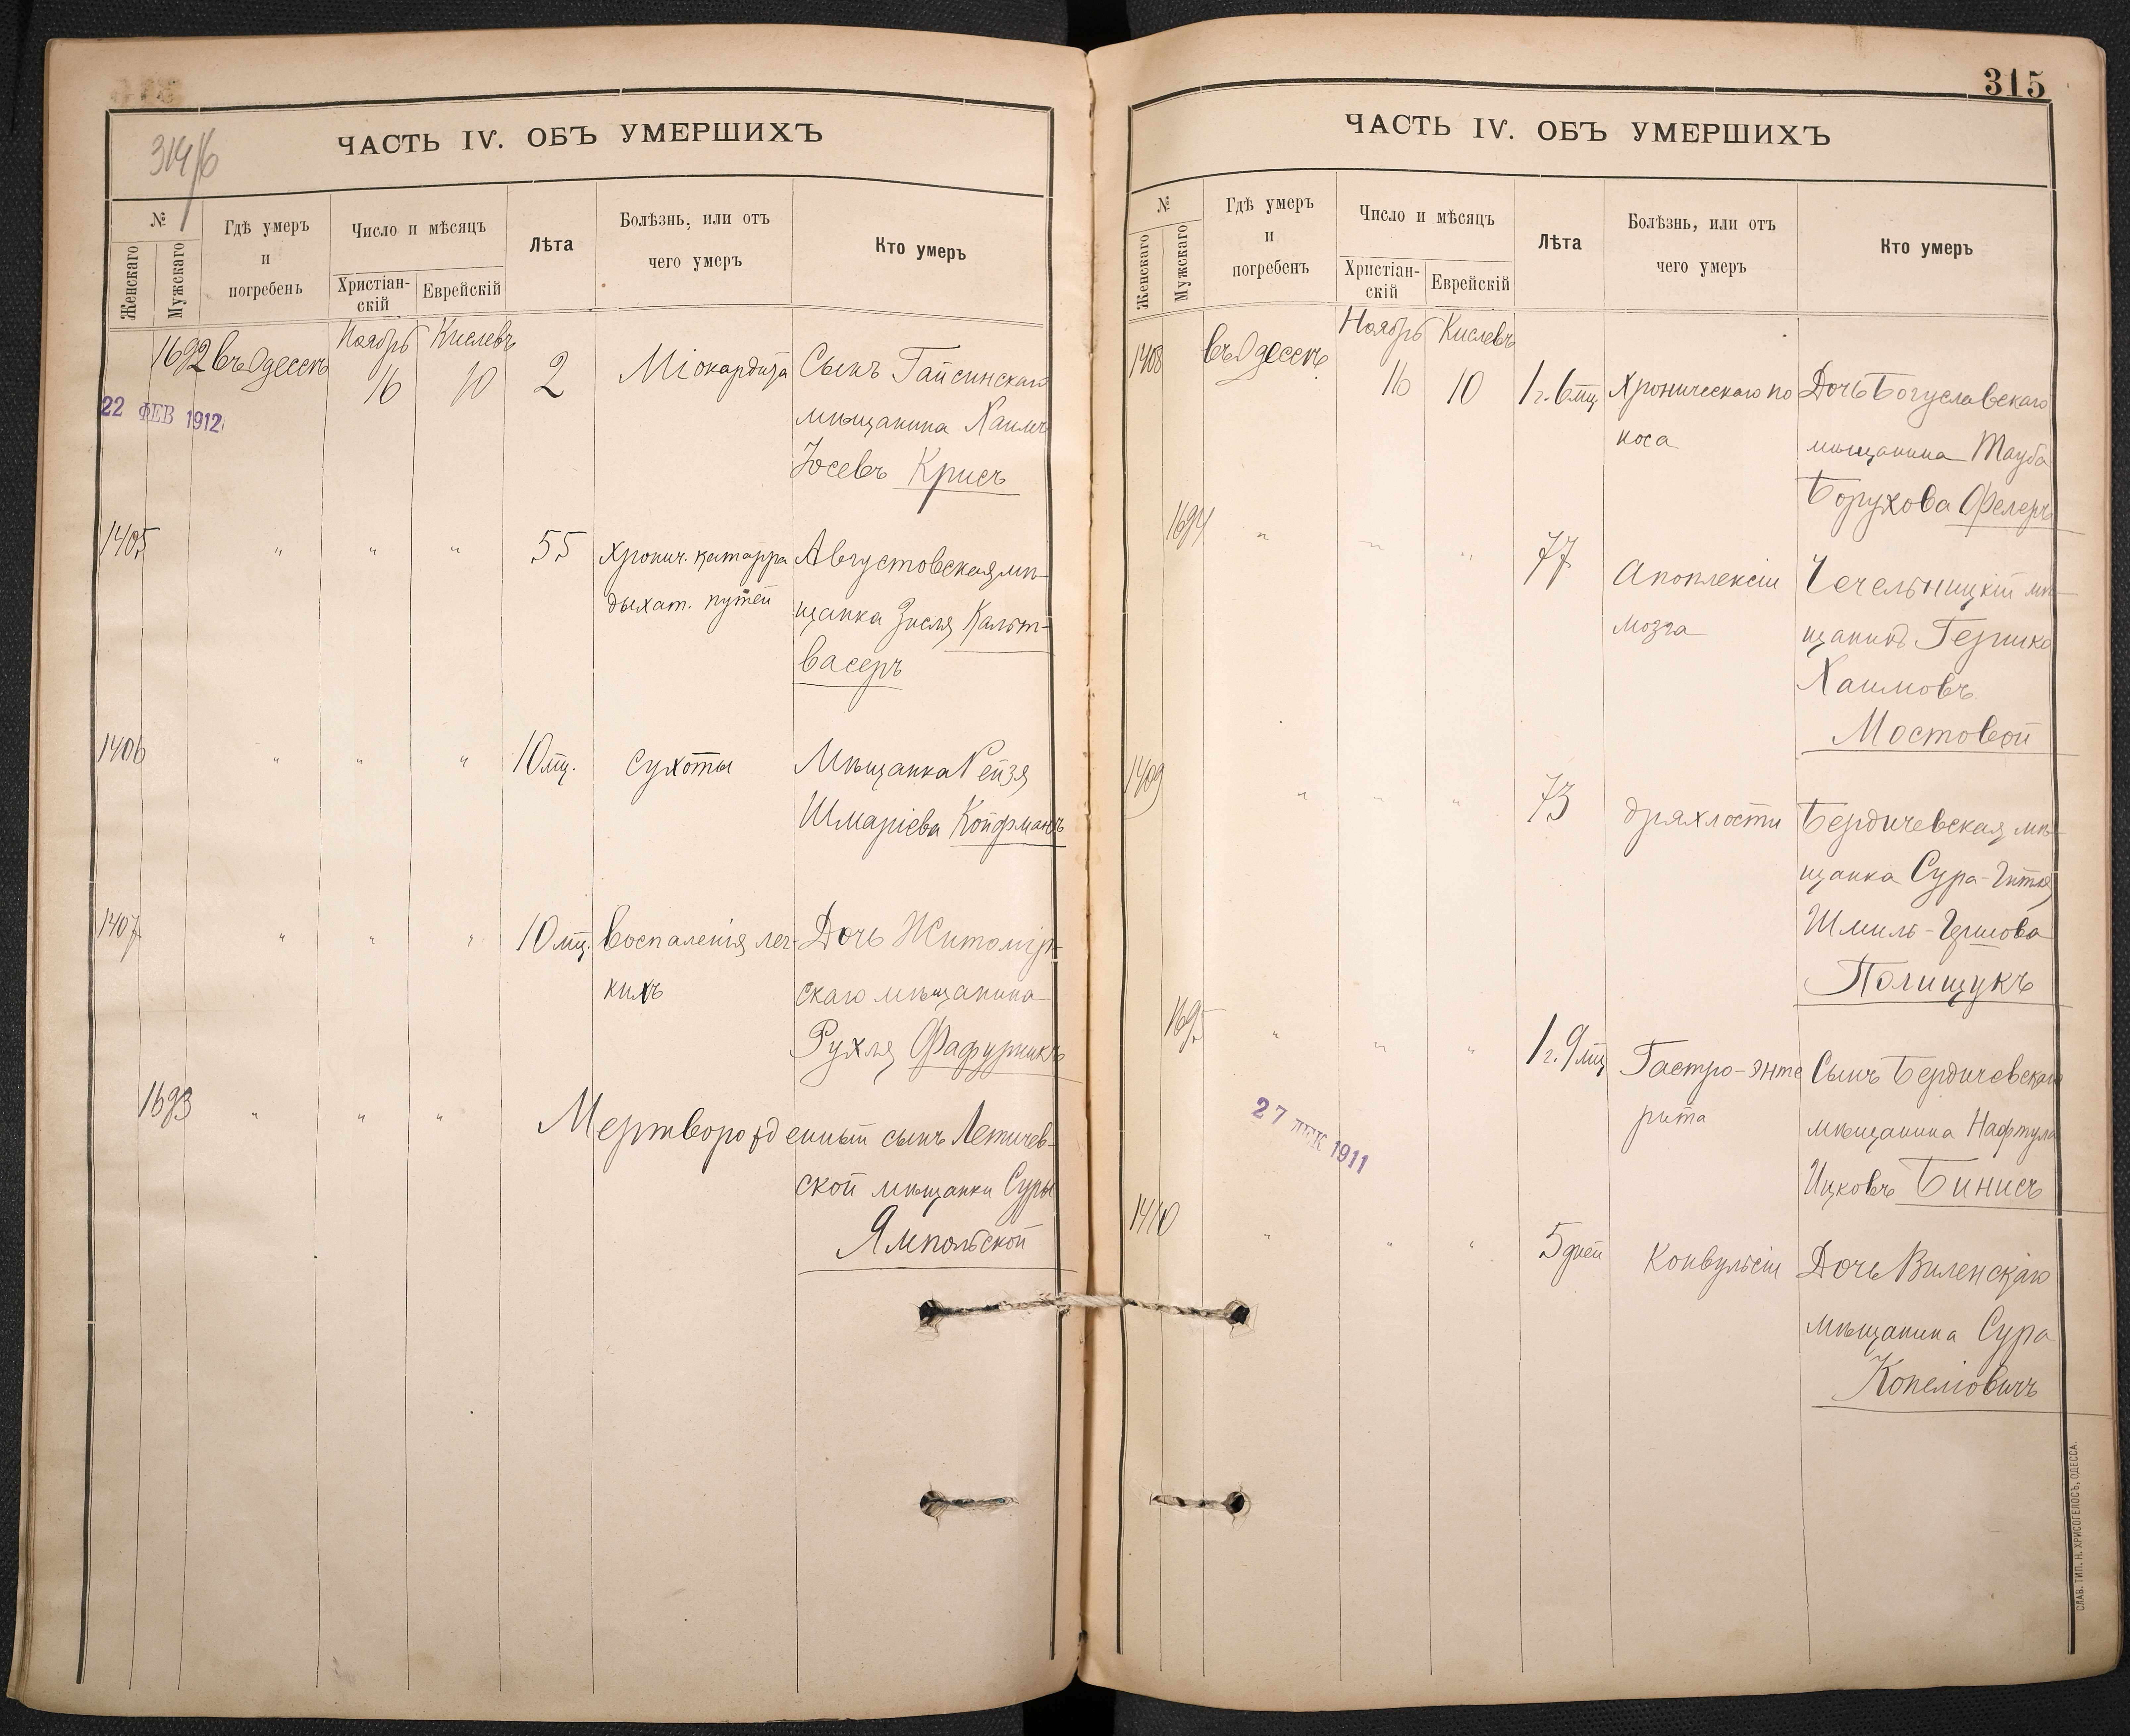 314/б
ЧАСТЬ IV. ОБЪ УМЕРШИХЪ
№
Женскаго
Мужскаго
Гдѣ умеръ
и
погребенъ
Число и мѣсяцъ
Христіан-
скій
Еврейскій
Лѣта
Болѣзнь, или отъ
чего умеръ
Кто умеръ
Ноябрь Кислевъ
1692 въ Одессѣ 16 10 2 Міокардита Сынъ Гайсинскаго
22 ФЕВ 1912
мѣщанина Хаимъ
Іосевъ Крисъ
1405 " " " 55 Хронич. катарра Августовская мѣ-
дыхат. путей щанка Зисля Кальт-
васеръ
1406 " " " 10 мц. Сухоты Мѣщанка Рейзя
Шмаріева Койфманъ
1407 " " " 10 мц. Воспаленія лег- Дочь Житомір-
кихъ скаго мѣщанина
Рухля Фафурникъ
1693 " " " Мертворожденный сынъ Летичев-
ской мѣщанки Суры
Ямпольской
315
ЧАСТЬ IV. ОБЪ УМЕРШИХЪ
№
Женскаго
Мужскаго
Гдѣ умеръ
и
погребенъ
Число и мѣсяцъ
Христіан-
скій
Еврейскій
Лѣта
Болѣзнь, или отъ
чего умеръ
Кто умеръ
Ноябрь Кислевъ
1408 въ Одессѣ 16 10 1 г. 6 мц Хроническаго по Дочь Богуславскаго
носа мѣщанина Тауба
Борухова Фелеръ
1694 " " " 77 Апоплексіи Чечельницкій мѣ-
мозга щанинъ Гершко
Хаимовъ
Мостовой
1409 " " " 73 дряхлости Бердичевская мѣ-
щанка Сура-Гитля
Шмиль-Гершова
Полищукъ
1695 " " " 1 г. 9 мц Гастро-энте Сынъ Бердичевскаго
рита мѣщанина Нафтула
27 ДЕК 1911
Ицковъ Бинисъ
1410 " " " 5 дней Конвульсіи Дочь Виленскаго
мѣщанина Сура
Копеліовичъ
СЛАВ. ТИП. Н. ХРИСОГЕЛОСЪ, ОДЕССА.